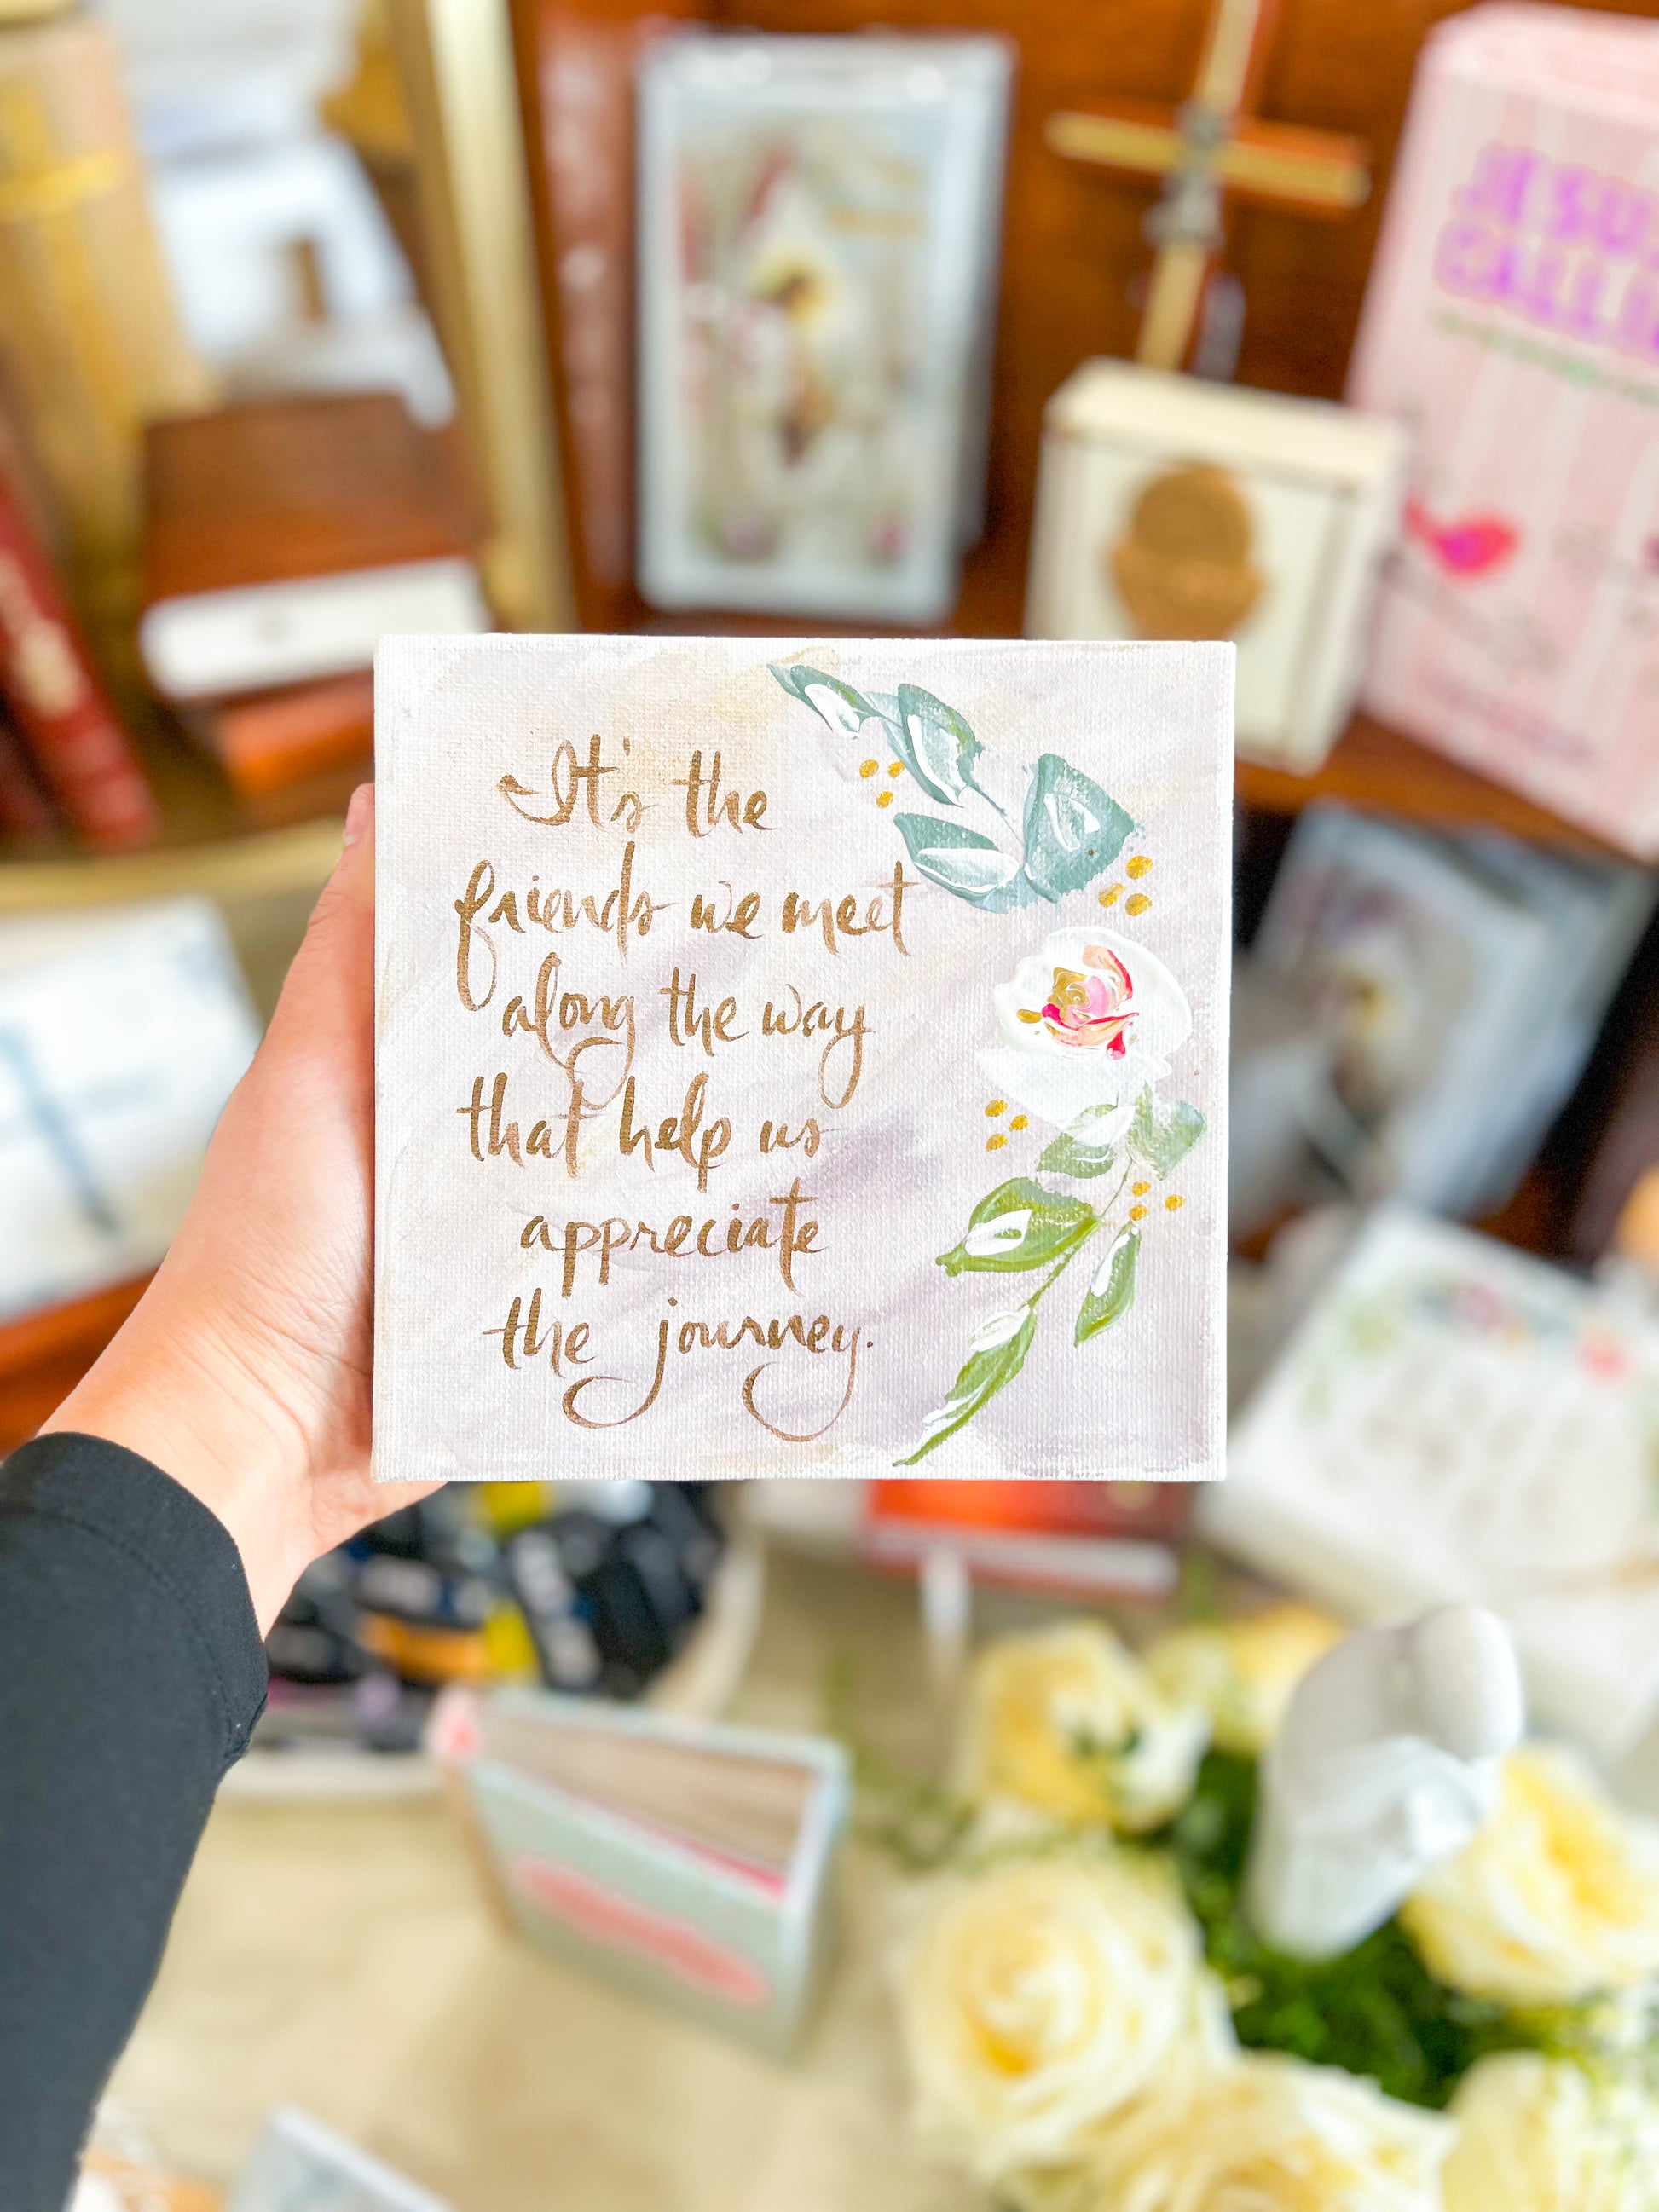 It's the
friends we meet
along the way
that help us
appreciate
the journey.
JESUS